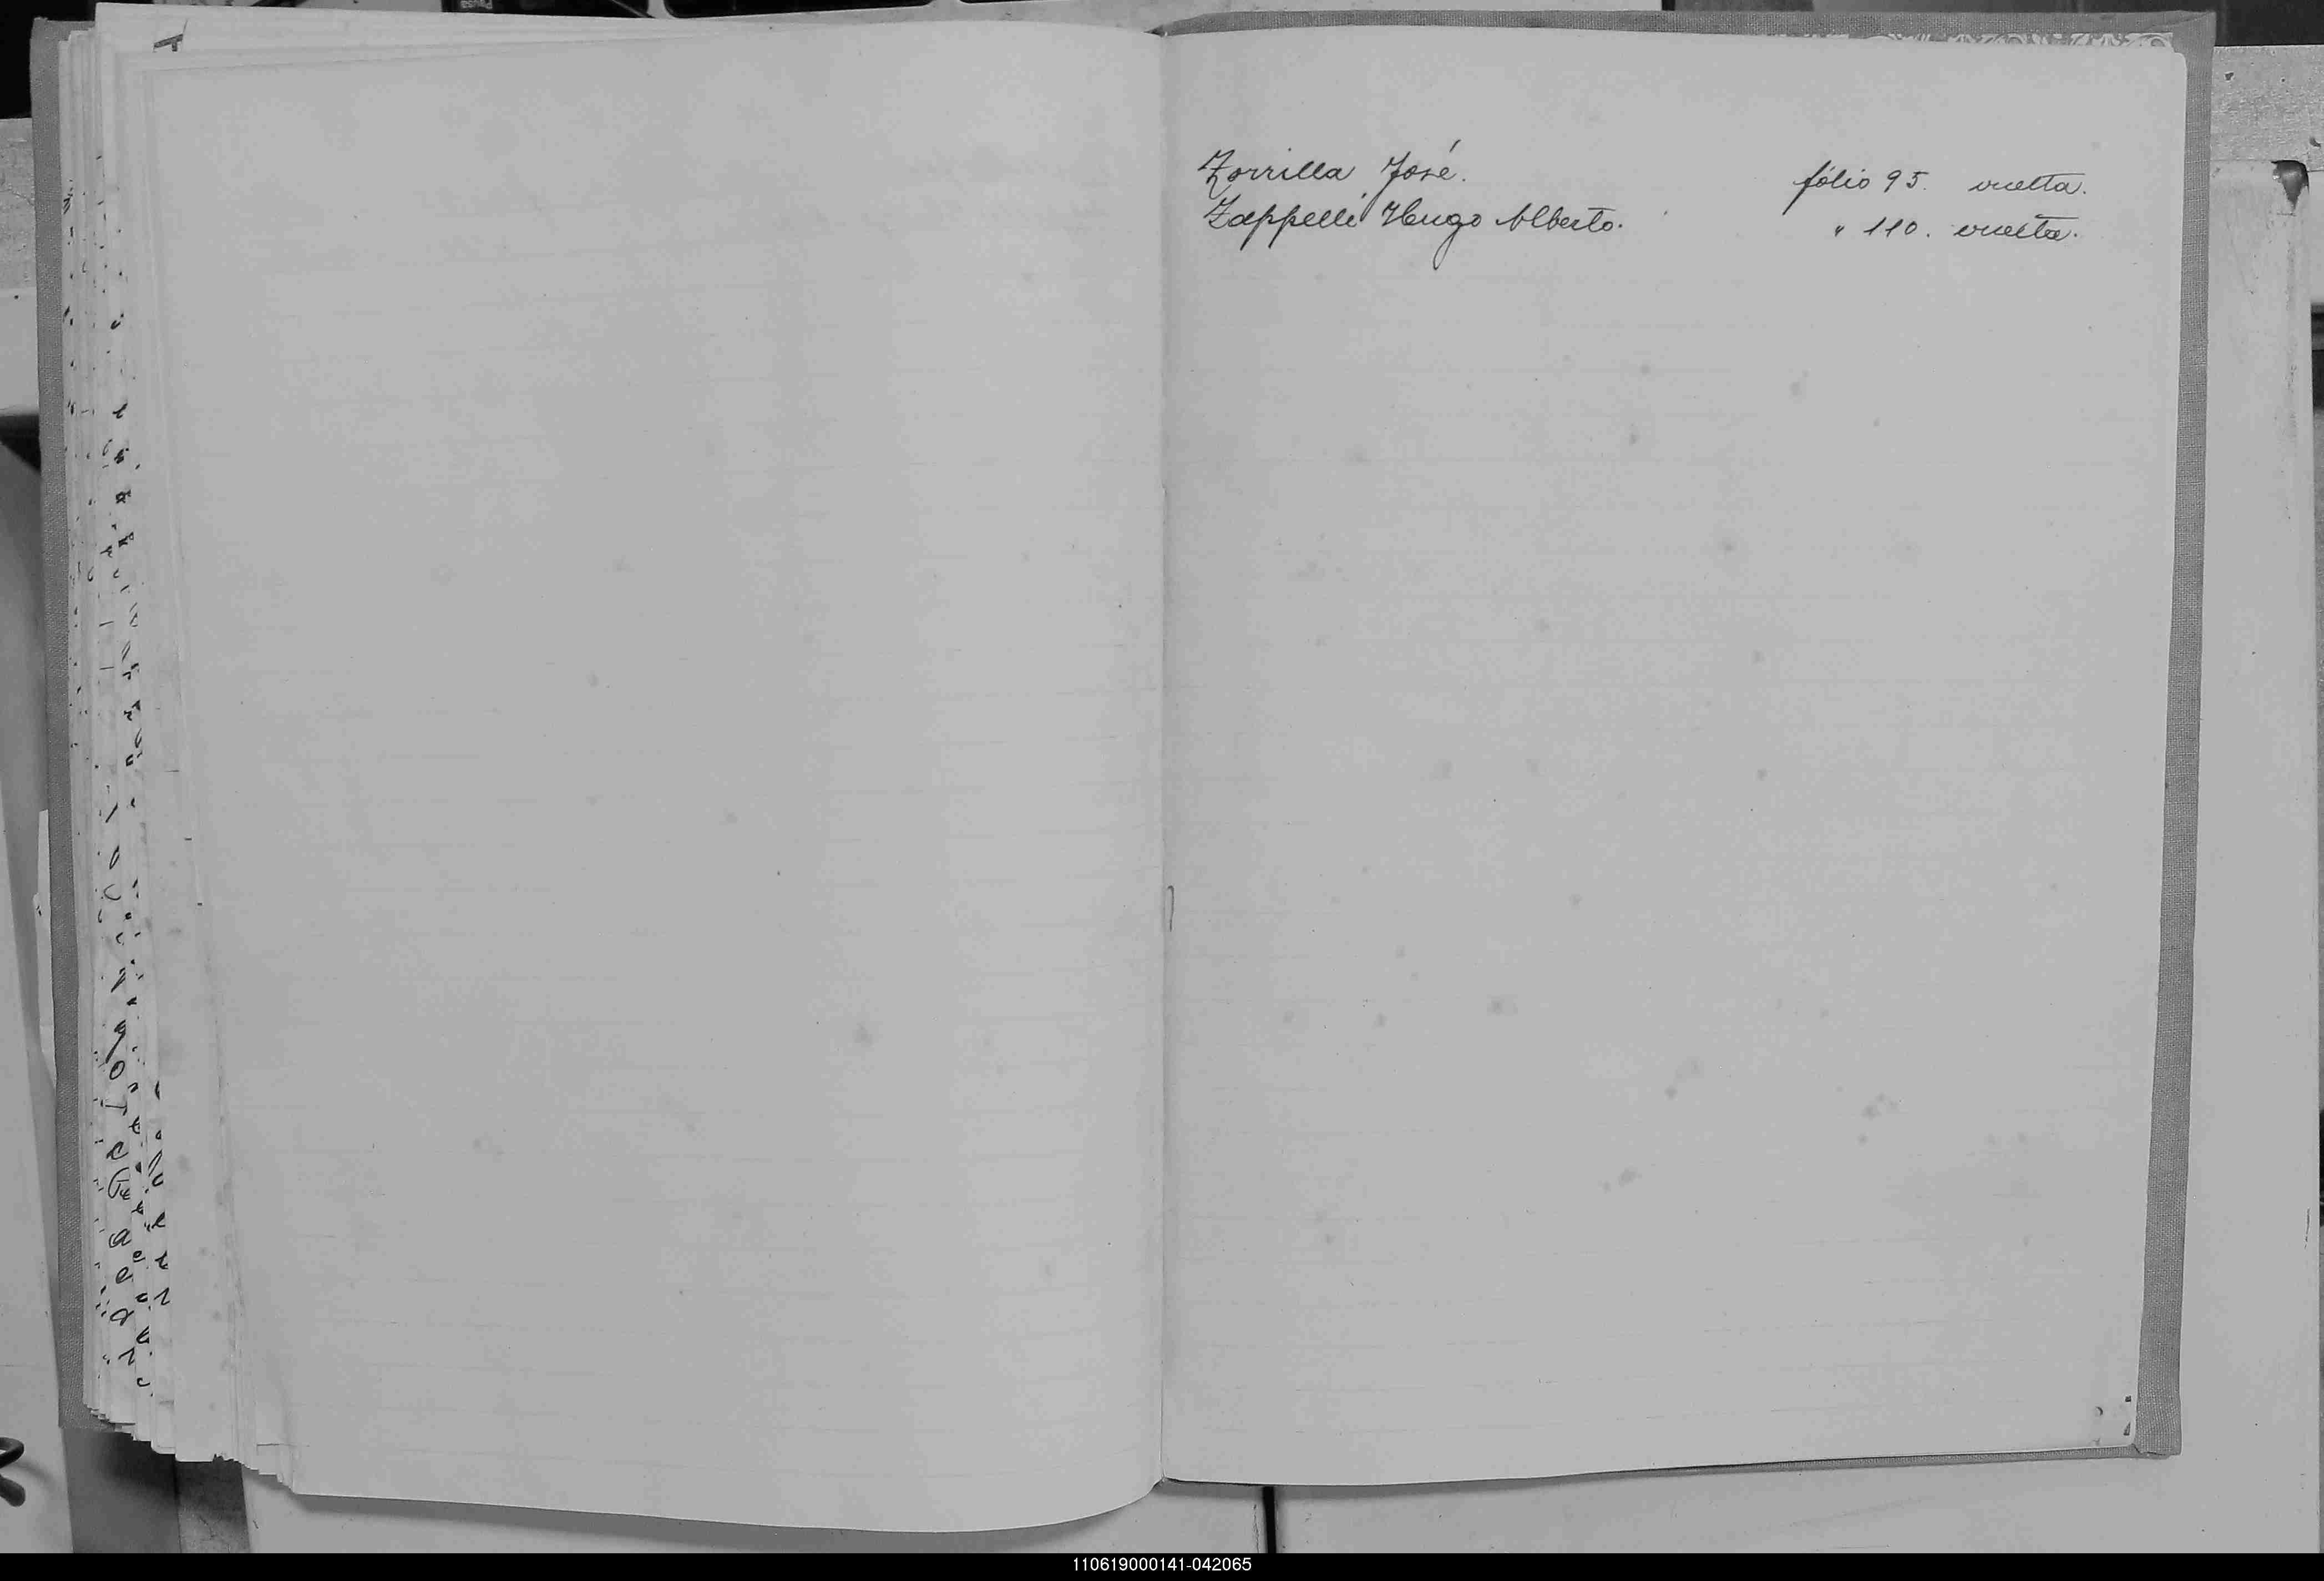 Zorrilla José. fólio 95. vuelta.
Zappelli Hugo Alberto. " 110. vuelta.
110619000141-042065